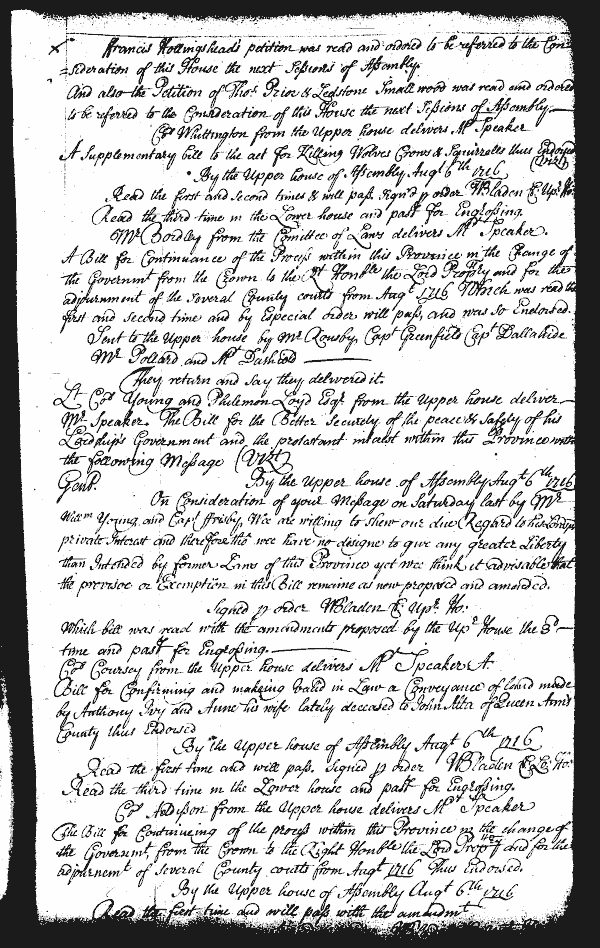 Francis Hollingsheads petition was read and ordred to be referred to the Con=
=sideration of this House the next Sessions of Assembly.
And also the Petition of Thos. Prior & Ledstone Smallwood was read and ordered
to be referred to the Consideration of this House the next Sessions of Assembly
Col Whittington from the Upper house delivers Mr Speaker
A Supplementary bill to the act for Killing Wolves Crows & Squirrells thus Endorsed
(Vizt)
By the Upper house of Assembly Augt 6th 1716
Read the first and second times & will pass. Sign'd p order WBladen Cl Upr Ho:
Read the third time in the Lower house and past for Engrossing.
Mr Bordley from the Comittee of Laws delivers Mr Speaker.
A Bill for Continuance of the Process within this Province in the Change of
the Governmt from the Crown to the Rt Honble the Lord Propry and for the
adjournment of the Several County courts from Augt 1716 Which was read the
first and second time and by Especial order will pass, and was so Endorsed.
Sent to the Upper house by Mr Lousby, Capt Greenfield Capt Dallahide
Mr Pollard and Mr Dashield
They return and say they delivered it.
Lt Col Young and Philemon Loyd Esqr from the Upper house deliver
Mr Speaker. The Bill for the Better Security of the peace & Safety of his
Lordships Government and the protestant interest within this Province with
the following Message (Vizt)
By the Upper house of Assembly Augt 6th 1716
Gent.
On Consideration of your Message on Saturday last by Mr
Willm Young, and Capt Frisby, Wee are willing to shew our due Regard to his Lordps
private Interest and therefore tho wee have no designe to give any greater Liberty
than Intended by former Laws of this Province yet wee think it advisable that
the provisoe or Exemption in this Bill remaine as now proposed and amended.
Signed p order WBladen Cl Upr. Ho:
Which bill was read with the amendments proposed by the Upr House the 3d
time and past for Engrossing.
Col Coursey from the Upper house delivers Mr Speaker A
Bill for Confirming and making valid in Law a Conveyance of land made
by Anthony Ivy and Anne his wife lately deceased to John of Queen Ann's
County thus Endorsed
By the Upper house of Assembly Augt 6th 1716
Read the first time and will pass. Signed p order WBladen Cl Ho:
Read the third time in the Lower house and past for Engrossing.
Col Addison from the Upper house delivers Mr Speaker
The Bill for Continuing of the process within this Province in the change of
the Governmt. from the Crown to the Right Honble the Lord Propry and for the
adjournemt of Several County courts from Augt 1716 Thus Endorsed.
By the Upper house of Assembly Augt 6th 1716
Read the first time and will pass with the amendmt